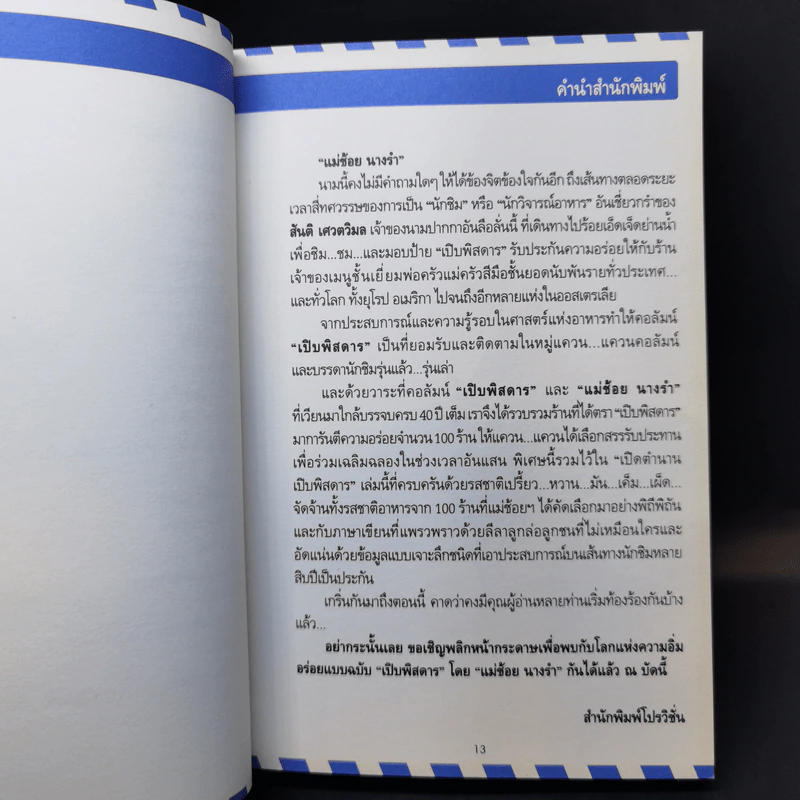 คำนำสำนักพิมพ์
“แม่ช้อย นางรำ”
นามนี้คงไม่มีคำถามใดๆ ให้ได้ข้องจิตข้องใจกันอีก ถึงเส้นทางตลอดระยะ
เวลาสี่ทศวรรษของการเป็น “นักชิม” หรือ “นักวิจารณ์อาหาร” อันเชี่ยวกรำของ
สันติ เศวตวิมล เจ้าของนามปากกาอันลือลั่นนี้ ที่เดินทางไปร้อยเอ็ดเจ็ดย่านน้ำ
เพื่อชิม...ชม...และมอบป้าย “เปิบพิสดาร” รับประกันความอร่อยให้กับร้าน
เจ้าของเมนูชั้นเยี่ยมพ่อครัวแม่ครัวสีมือชั้นยอดนับพันรายทั่วประเทศ...
และทั่วโลก ทั้งยุโรป อเมริกา ไปจนถึงอีกหลายแห่งในออสเตรเลีย
จากประสบการณ์และความรู้รอบในศาสตร์แห่งอาหารทำให้คอลัมน์
“เปิบพิสดาร” เป็นที่ยอมรับและติดตามในหมู่แควน...แควนคอลัมน์
และบรรดานักชิมรุ่นแล้ว...รุ่นเล่า
และด้วยวาระที่คอลัมน์ “เปิบพิสดาร” และ “แม่ช้อย นางรำ”
ที่เวียนมาใกล้บรรจบครบ 40 ปี เต็ม เราจึงได้รวบรวมร้านที่ได้ตรา “เปิบพิสดาร”
มาการันตีความอร่อยจำนวน 100 ร้าน ให้แควน...แควนได้เลือกสรรรับประทาน
เพื่อร่วมเฉลิมฉลองในช่วงเวลาอันแสน พิเศษนี้รวมไว้ใน “เปิดตำนาน
เปิบพิสดาร” เล่มนี้ที่ครบครันด้วยรสชาติเปรี้ยว...หวาน...มัน...เค็ม...เผ็ด...
จัดจ้านทั้งรสชาติอาหารจาก 100 ร้านที่แม่ช้อยฯ ได้คัดเลือกมาอย่างพิถีพิถัน
และกับภาษาเขียนที่แพรวพราวด้วยลีลาลูกล่อลูกชนที่ไม่เหมือนใครและ
อัดแน่นด้วยข้อมูลแบบเจาะลึกชนิดที่เอาประสบการณ์บนเส้นทางนักชิมหลาย
สิบปีเป็นประกัน
เกริ่นกันมาถึงตอนนี้ คาดว่าคงมีคุณผู้อ่านหลายท่านเริ่มท้องร้องกันบ้าง
แล้ว...
อย่ากระนั้นเลย ขอเชิญพลิกหน้ากระดาษเพื่อพบกับโลกแห่งความอิ่ม
อร่อยแบบฉบับ “เปิบพิสดาร” โดย “แม่ช้อย นางรำ” กันได้แล้ว ณ บัดนี้
สำนักพิมพ์โปรวิชั่น
13